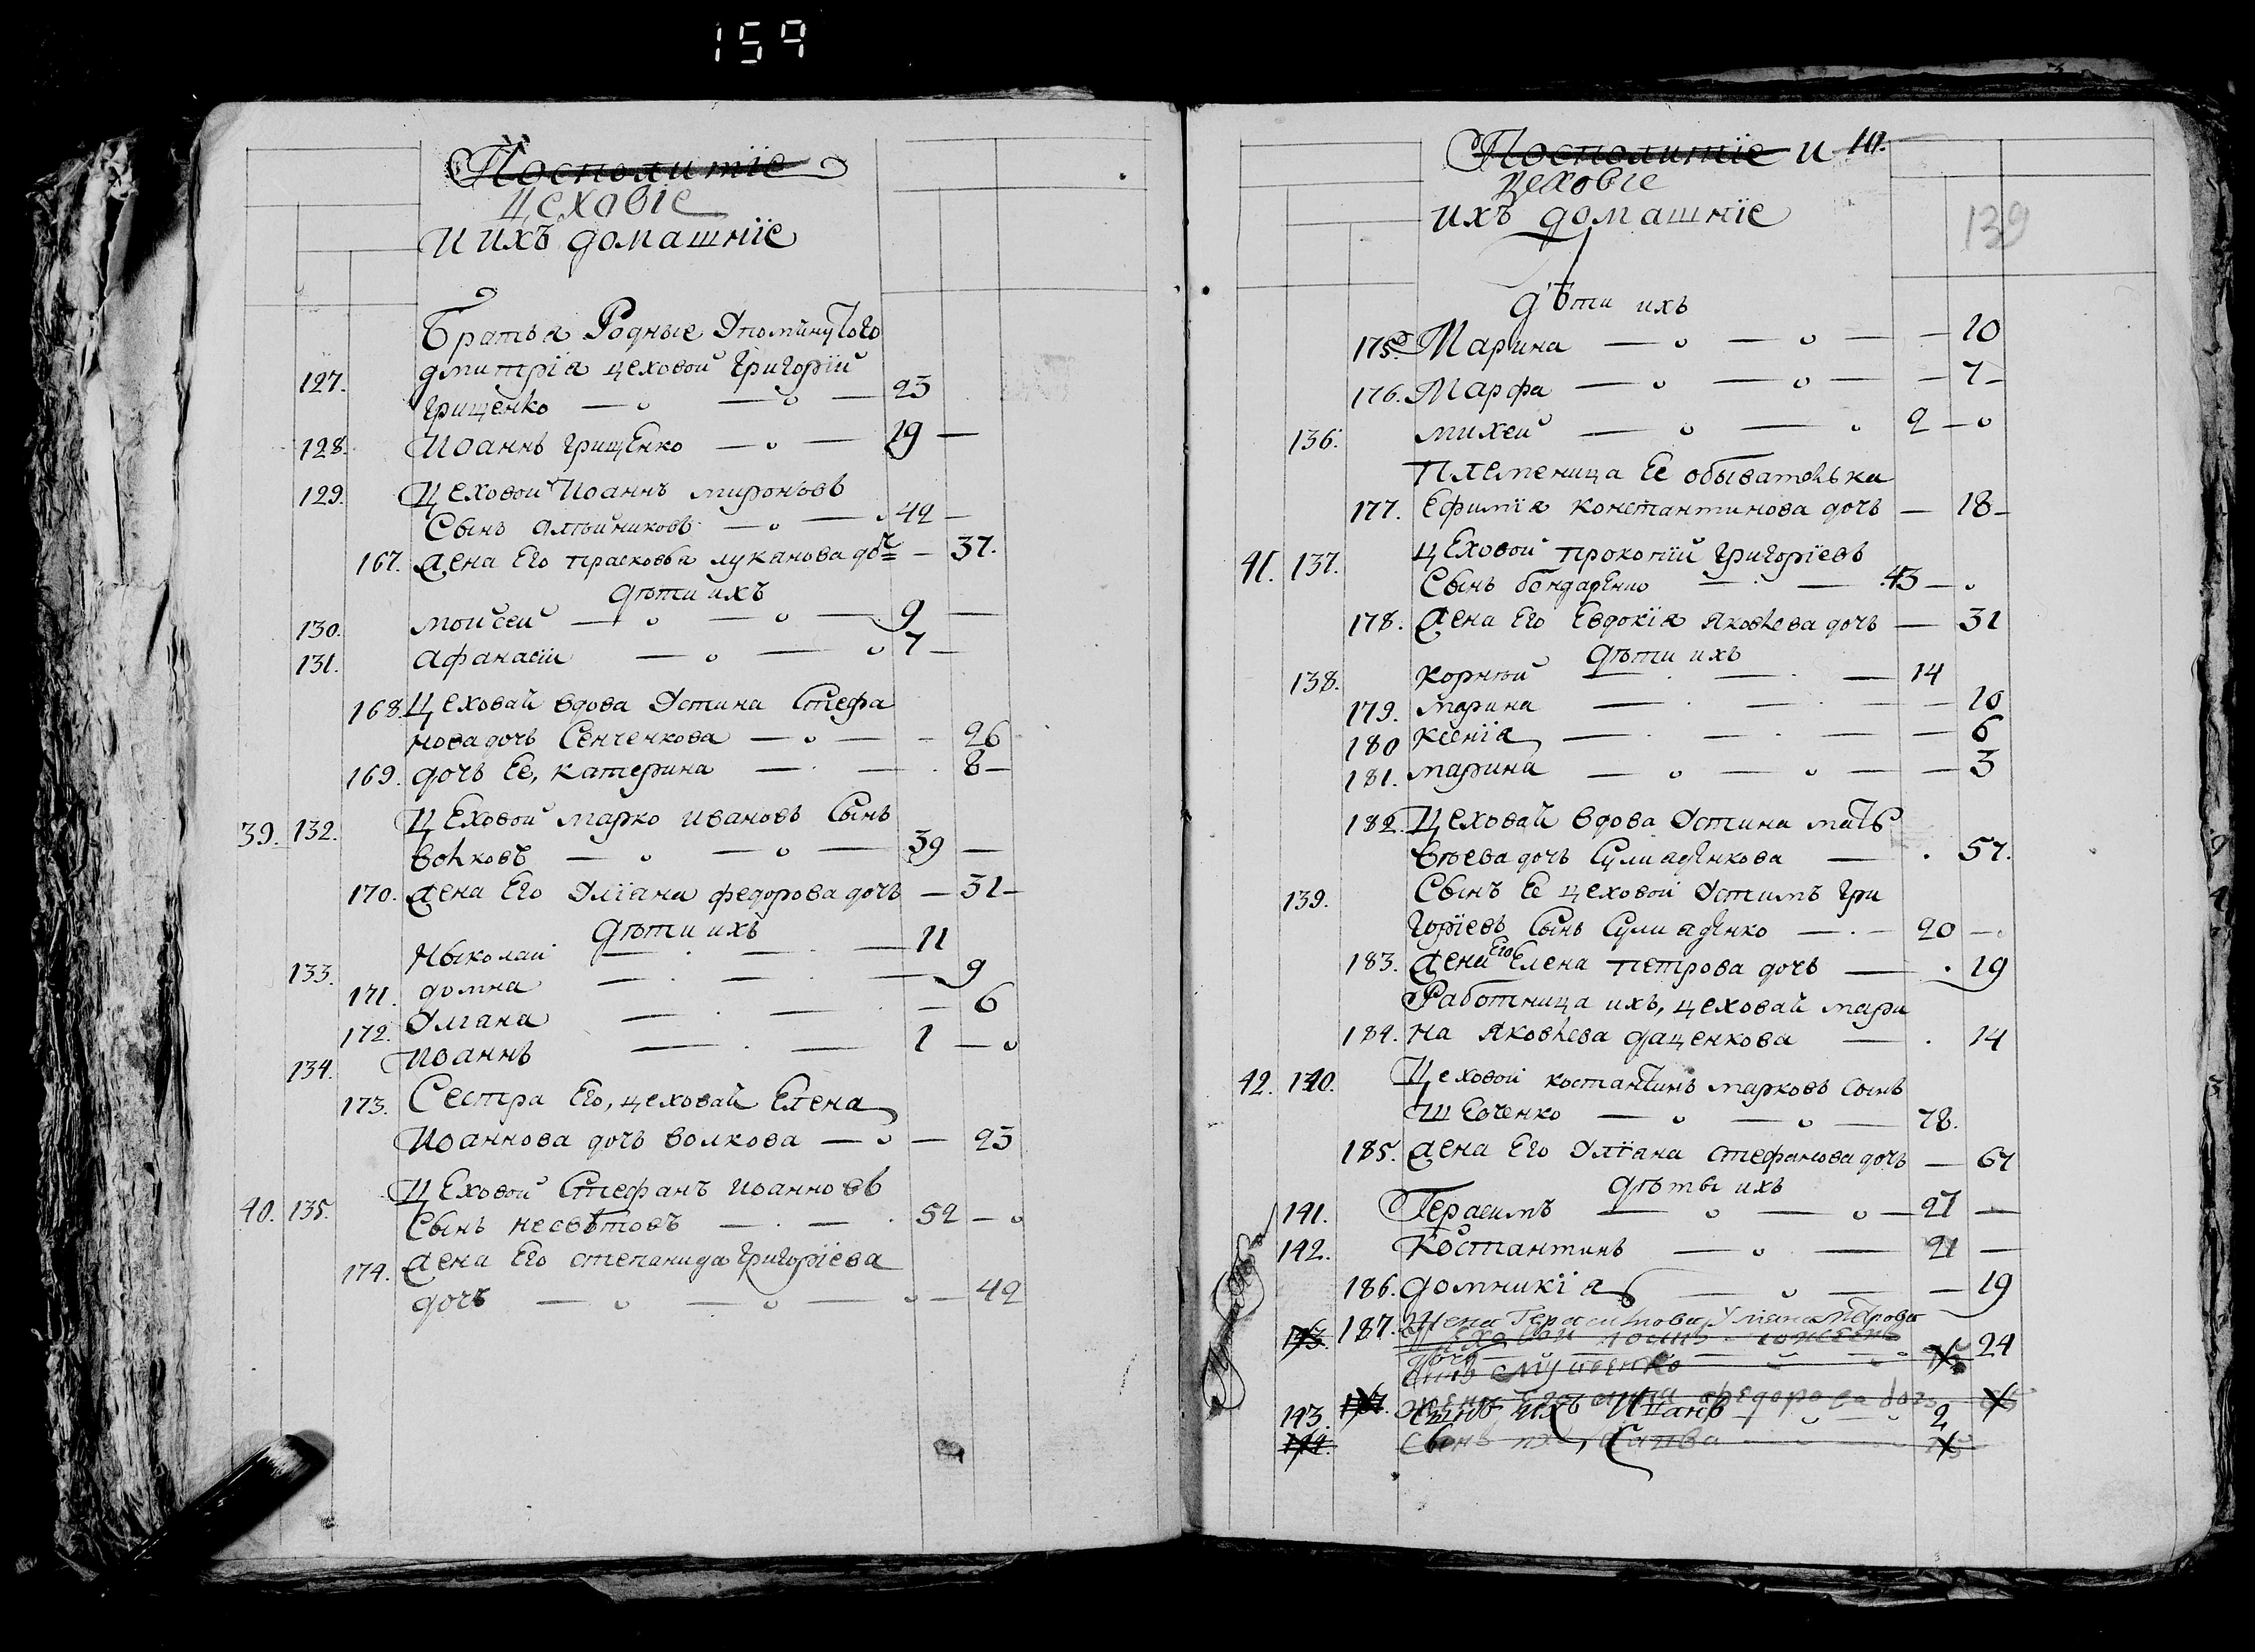 159
Посполитіе
цеховіе
и ихъ домашніе
Братья Родные Упомянутого
127. дмитрія цеховой Григорій
Грищенко — 23
128. Иоаннъ Грищенко — 19 —
129. Цеховой Иоаннъ мироновъ
Сынъ — 42 —
167. жена Его прасковья луканова доч — 37.
дѣти ихъ
130. мойсей — 9 —
131. афанасій — 7 —
168. Цеховая вдова Устина Стефа
нова дочь Сенченкова — 26
169. дочь Ее, катерина — 8 —
39. 132. Цеховой марко ивановъ Сынъ
волковъ — 39 —
170. жена Его Уліана федорова дочь — 31 —
дѣти ихъ
133. Ныколай — 11
171. домна — 9
172. Уліана — 6
134. Иоаннъ — 1 —
173. Сестра Его, цеховая Елена
Иоаннова дочь волкова — 23
40. 135. Цеховой Стефанъ иоанновъ
Сынъ несвѣтовъ — 52 —
174. жена Его степанида григоріева
дочь — 42
Посполитіе и 10.
цеховіе
ихъ домашніе
139
дѣти ихъ
175. Марина — 10
176. Марфа — 7 —
136. михей — 2 —
Племеница Ее обывателька
177. Ефимія константинова дочь — 18 —
41. 137. цеховой прокопій григоріевъ
Сынъ бондаренко — 43 —
178. жена Его Евдокія яковлева дочь — 31
дѣти ихъ
138. корній — 14
179. марина — 10
180 ксенія — 6
181. марина — 3
182. Цеховая вдова Устина мат
вѣева дочь — 57.
139. Сынъ Ее цеховой Устимъ гри
горіевъ Сынъ — 20 —
183. жена Его Елена петрова дочь — 19
Работница ихъ, цеховая мари
184. на яковлева даценкова — 14
42. 140. Цеховой костантинъ марковъ сынъ
Шевченко — 78.
185. жена Его Уліана стефанова дочь — 67
дѣты ихъ
141. Герасимъ — 27 —
142. Костантинъ — 21 —
186. домникіа — 19
187. Жена Герасимова Уліана Петрова
143. Цеховой
дочь — 24
сынъ
187. жена Его федорова доч
143. Сынъ ихъ Иванъ — 2
144. Сынъ их, Савва